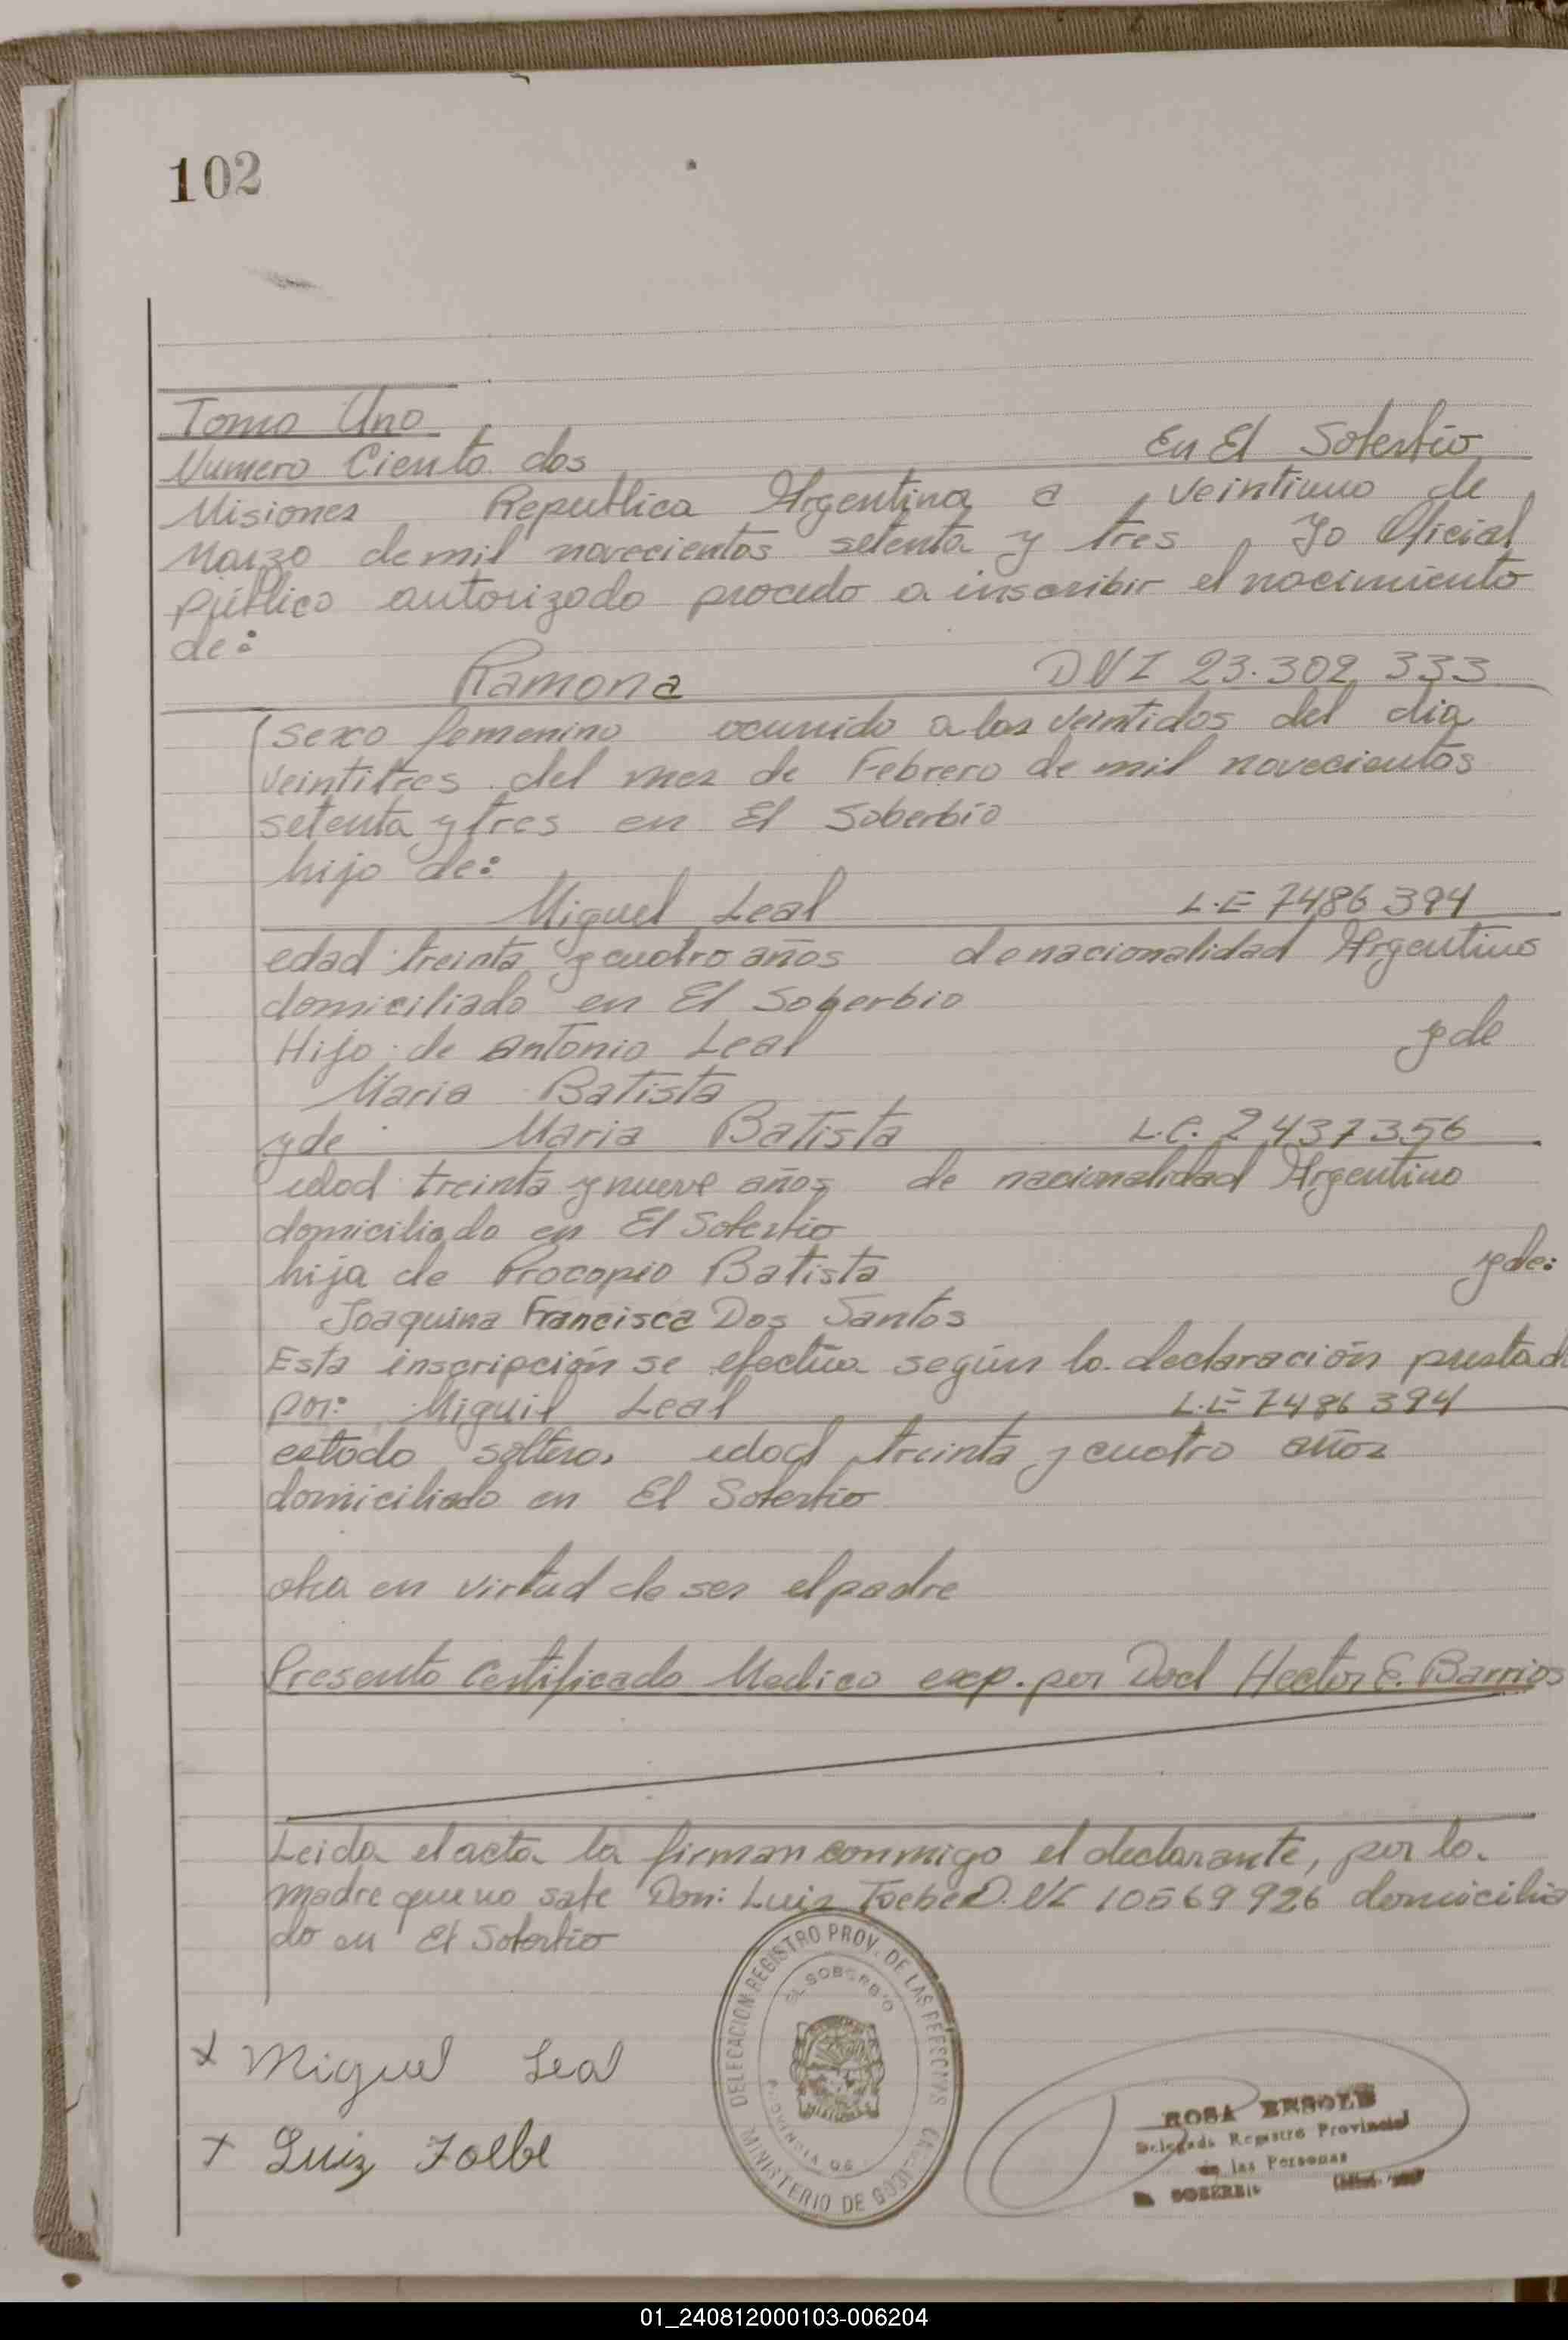 102
Tomo Uno
Numero Ciento dos En El Soberbio
Misiones Republica Argentina a veintiuno de
Marzo de mil novecientos setenta y tres, Yo Oficial
público autorizado procedo a inscribir el nacimiento
de:
Ramona DNI 23.302.333
sexo femenino ocurrido a las veintidos del dia
veintitres del mes de Febrero de mil novecientos
setenta y tres en El Soberbio
hijo de:
Miguel Leal L.E 7486394
edad treinta y cuatro años de nacionalidad Argentino
domiciliado en El Soberbio
Hijo de Antonio Leal y de
Maria Batista
y de Maria Batista L.C. 2437356
edad treinta y nueve años de nacionalidad Argentino
domiciliado en El Soberbio
hija de Procopio Batista y de:
Joaquina Francisca Dos Santos
Esta inscripción se efectúa según la declaración prestad
por: Miguil Leal L.E 7486394
estado soltero, edad treinta y cuatro años
domiciliado en El Soberbio
obra en virtud de ser el padre
Presento Certificado Medico exp. por Doct Hector E. Barrios
Leida el acta la firman conmigo el declarante, por la
madre que no sabe Don: Luiz D.NI 10569926 domicilia
do en El Soberbio
DELEGACION REGISTRO PROV. DE LAS PERSONAS
EL SOBERBIO
PROVINCIA DE
MISIONES
MINISTERIO DE GOBIERNO
x Miguel Leal
x Luiz
ROSA
Delegada Registro Provincial
de las Personas
EL SOBERBIO
01_240812000103-006204